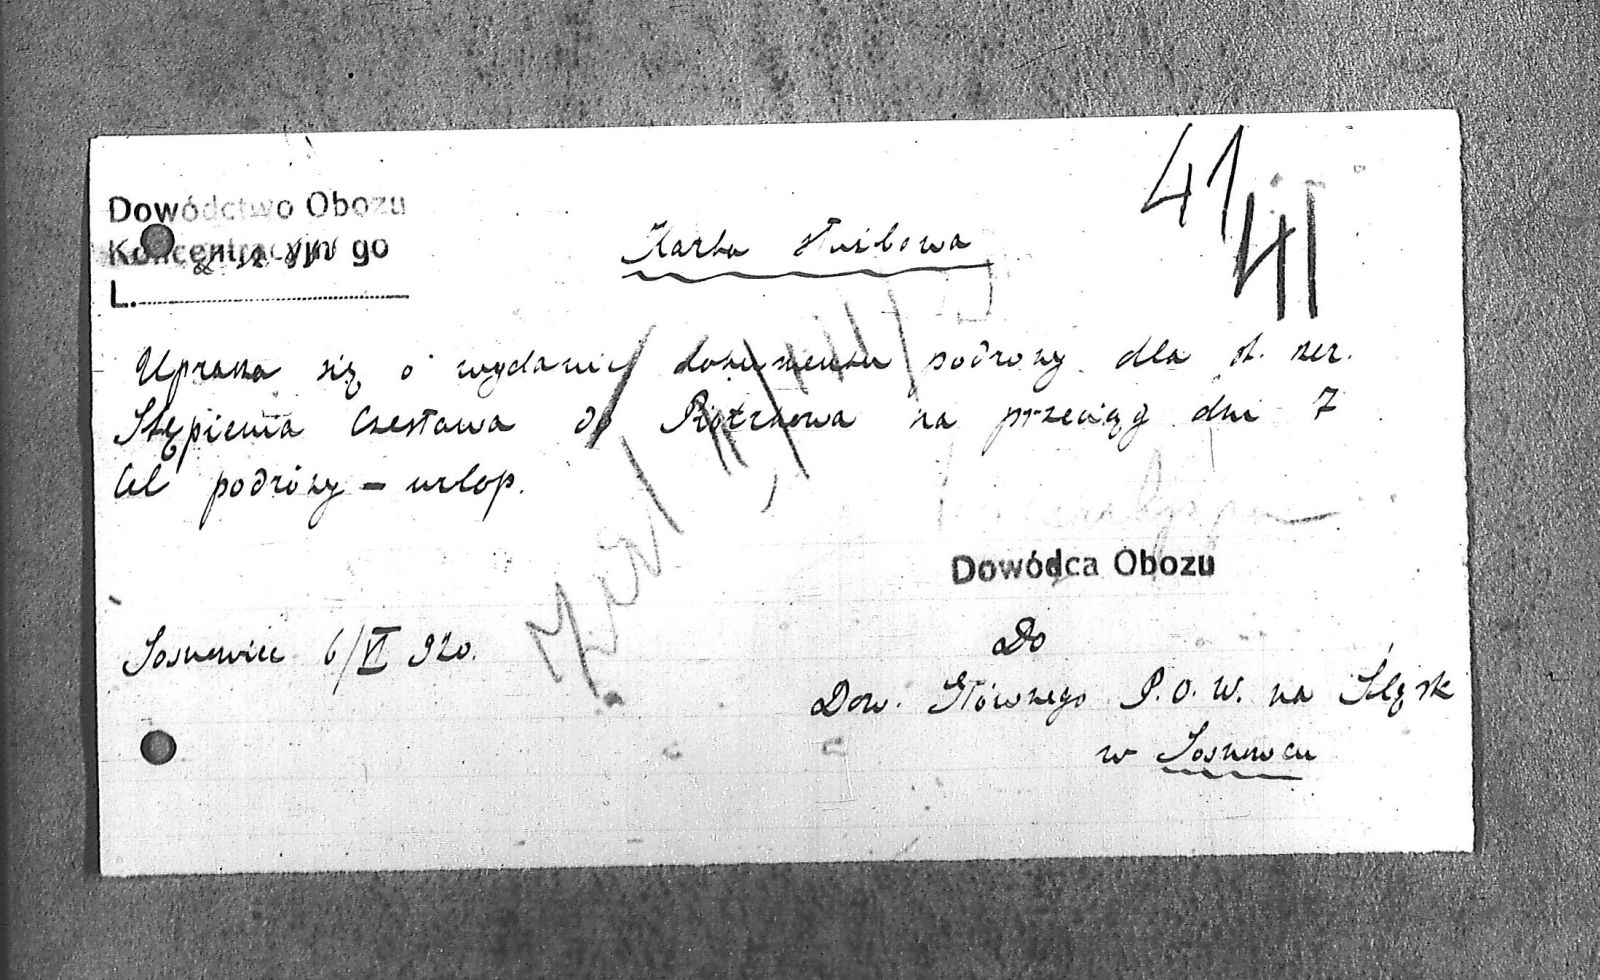 41
41
Dowództwo Obozu
Koncentracyjnego
L.
Kartka służbowa
Uprasza się o wydanie dokumentu podroży dla st. szer.
Stępienia Czesława do Piotrkowa na przeciąg dni 7
Cel podróży - urlop.
Dowódca Obozu
Sosnowiec 6/VI 920.
Do
Dow. Głównego P.O.W. na Śląsk
w Sosnowcu